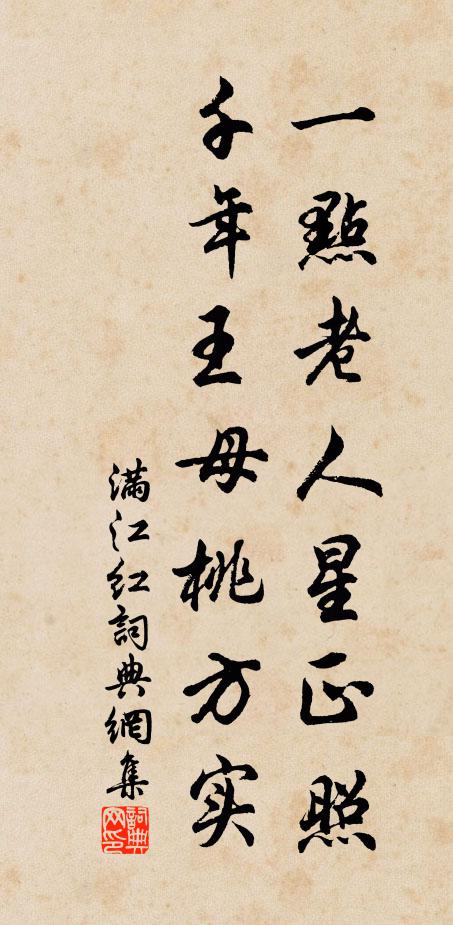 一點老人星正照
千年王母桃方实
满江红詞典網集
詞典网印